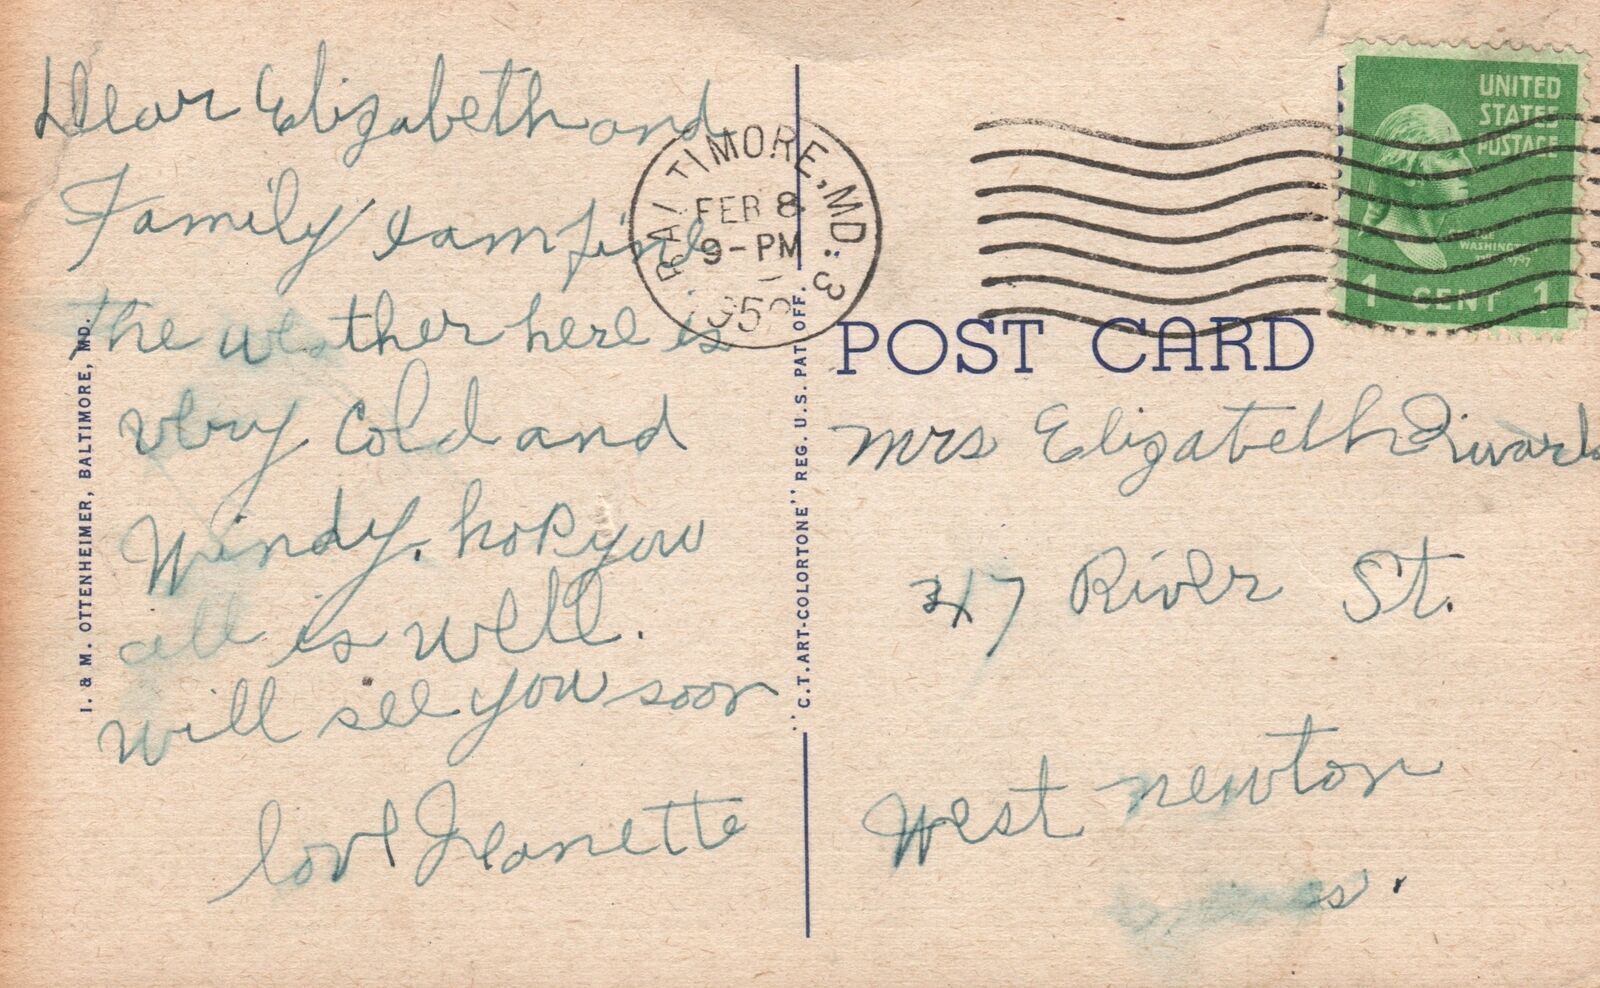 Dear Elizabeth and
Family I am fine
the weather here is
very cold and
Windy. hop you
all is well.
will see you soon
love Jeanette
I. & M. OTTENHEIMER, BALTIMORE, MD.
"C.T. ART-COLORTONE" REG. U.S. PAT. OFF.
BALTIMORE, MD. 3
FEB 8
9-PM
195
UNITED
STATES
POSTAGE
GEORGE
WASHINGTON
1 CENT 1
POST CARD
Mrs Elizabeth
River St.
West Newton